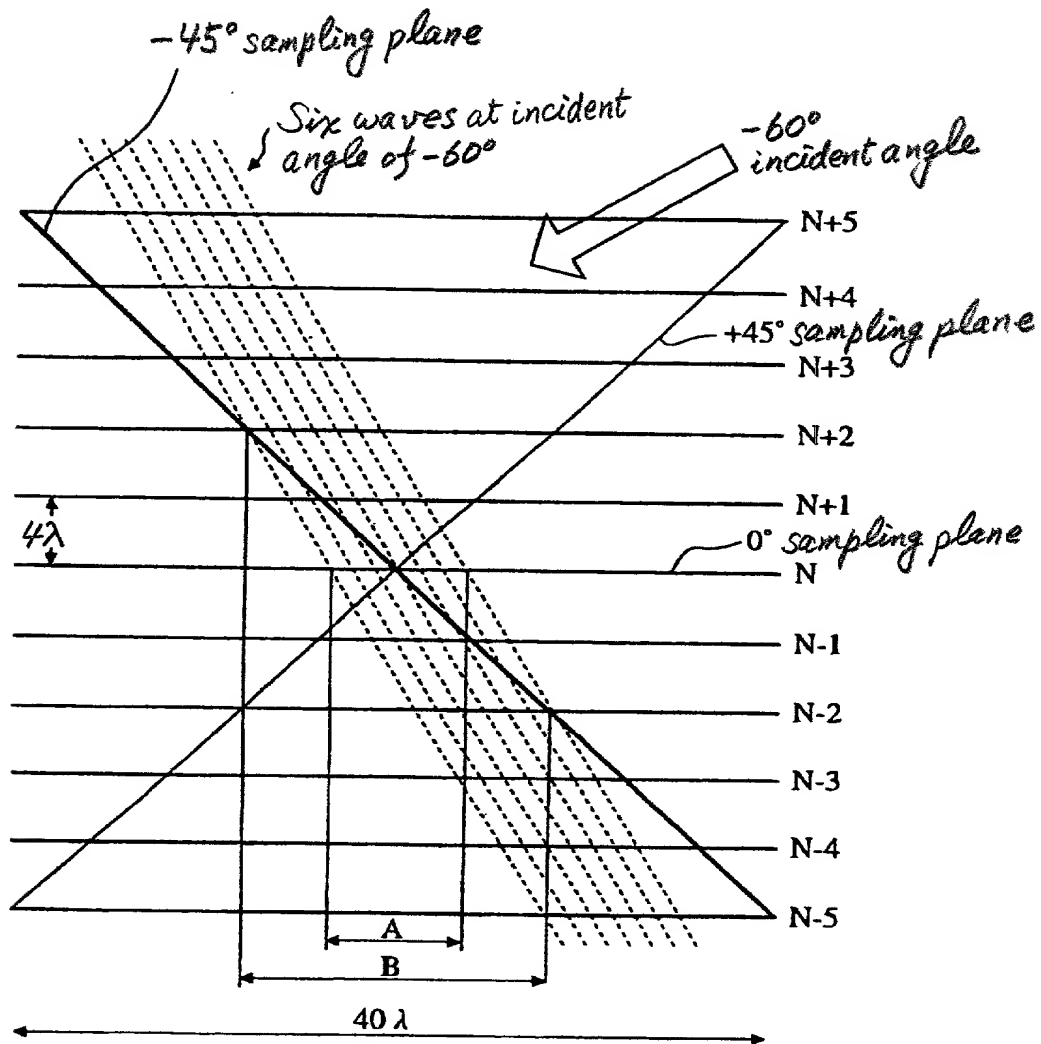 -45° sampling plane
Six waves at incident
angle of -60°
-60°
incident angle
N+5
N+4
+45° sampling plane
N+3
N+2
N+1
4λ
0° sampling plane
N
N-1
N-2
N-3
N-4
N-5
A
B
40 λ